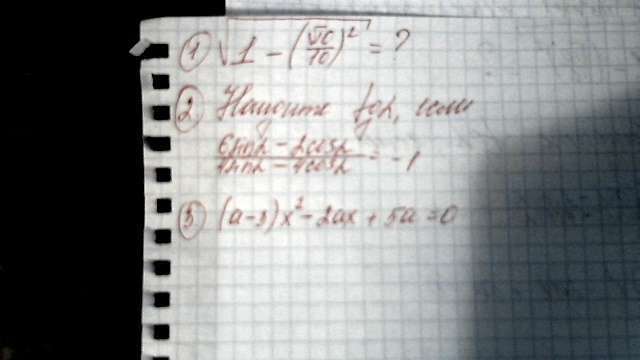 ① √1 - (√10/10)² = ?
② Найдите tgα, если
(6sinα - 2cosα)/(4sinα - 4cosα) = -1
③ (a-3)x² - 2ax + 5a = 0